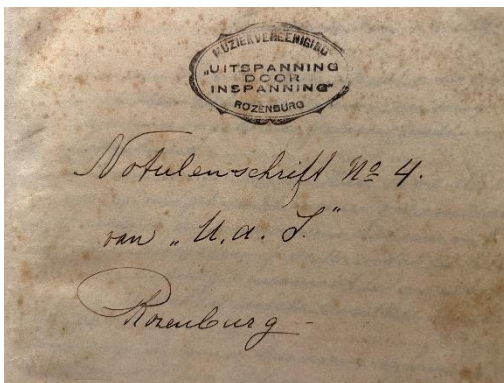 MUZIEKVEREENIGING
„UITSPANNING
DOOR
INSPANNING"
ROZENBURG
Notulenschrift No 4.
van „U. d. I."
Rozenburg -